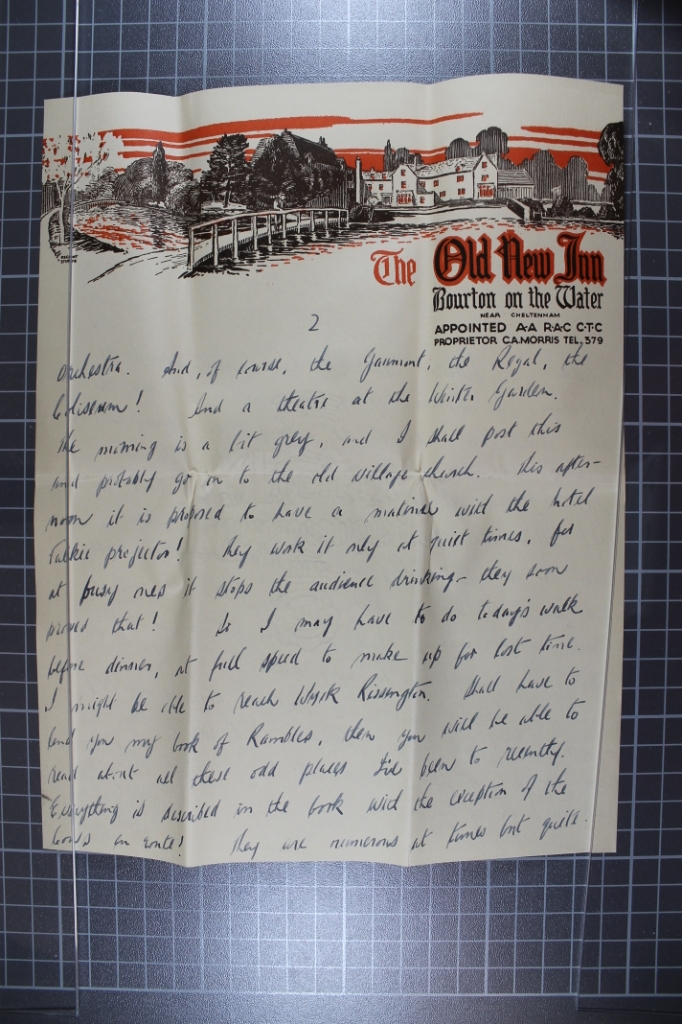 The Old New Inn
Bourton on the Water
NEAR CHELTENHAM
APPOINTED A·A R·A·C C·T·C
PROPRIETOR C.A.MORRIS TEL. 379
2
orchestra. And, of course, the Gaumont, the Regal, the
Coliseum! And a theatre at the Winter Garden.
The morning is a bit grey, and I shall post this
and probably go on to the old village church. This after-
noon it is proposed to have a matinee with the hotel
Talkie projector! They work it only at quiet times, for
at busy ones it stops the audience drinking - they soon
proved that! So I may have to do today's walk
before dinner, at full speed to make up for lost time.
I might be able to reach Wyck Rissington. Shall have to
lend you my book of Rambles, then you will be able to
read about all these odd places I've been to recently.
Everything is described in the book with the exception of the
cows en route! They are numerous at times but quite